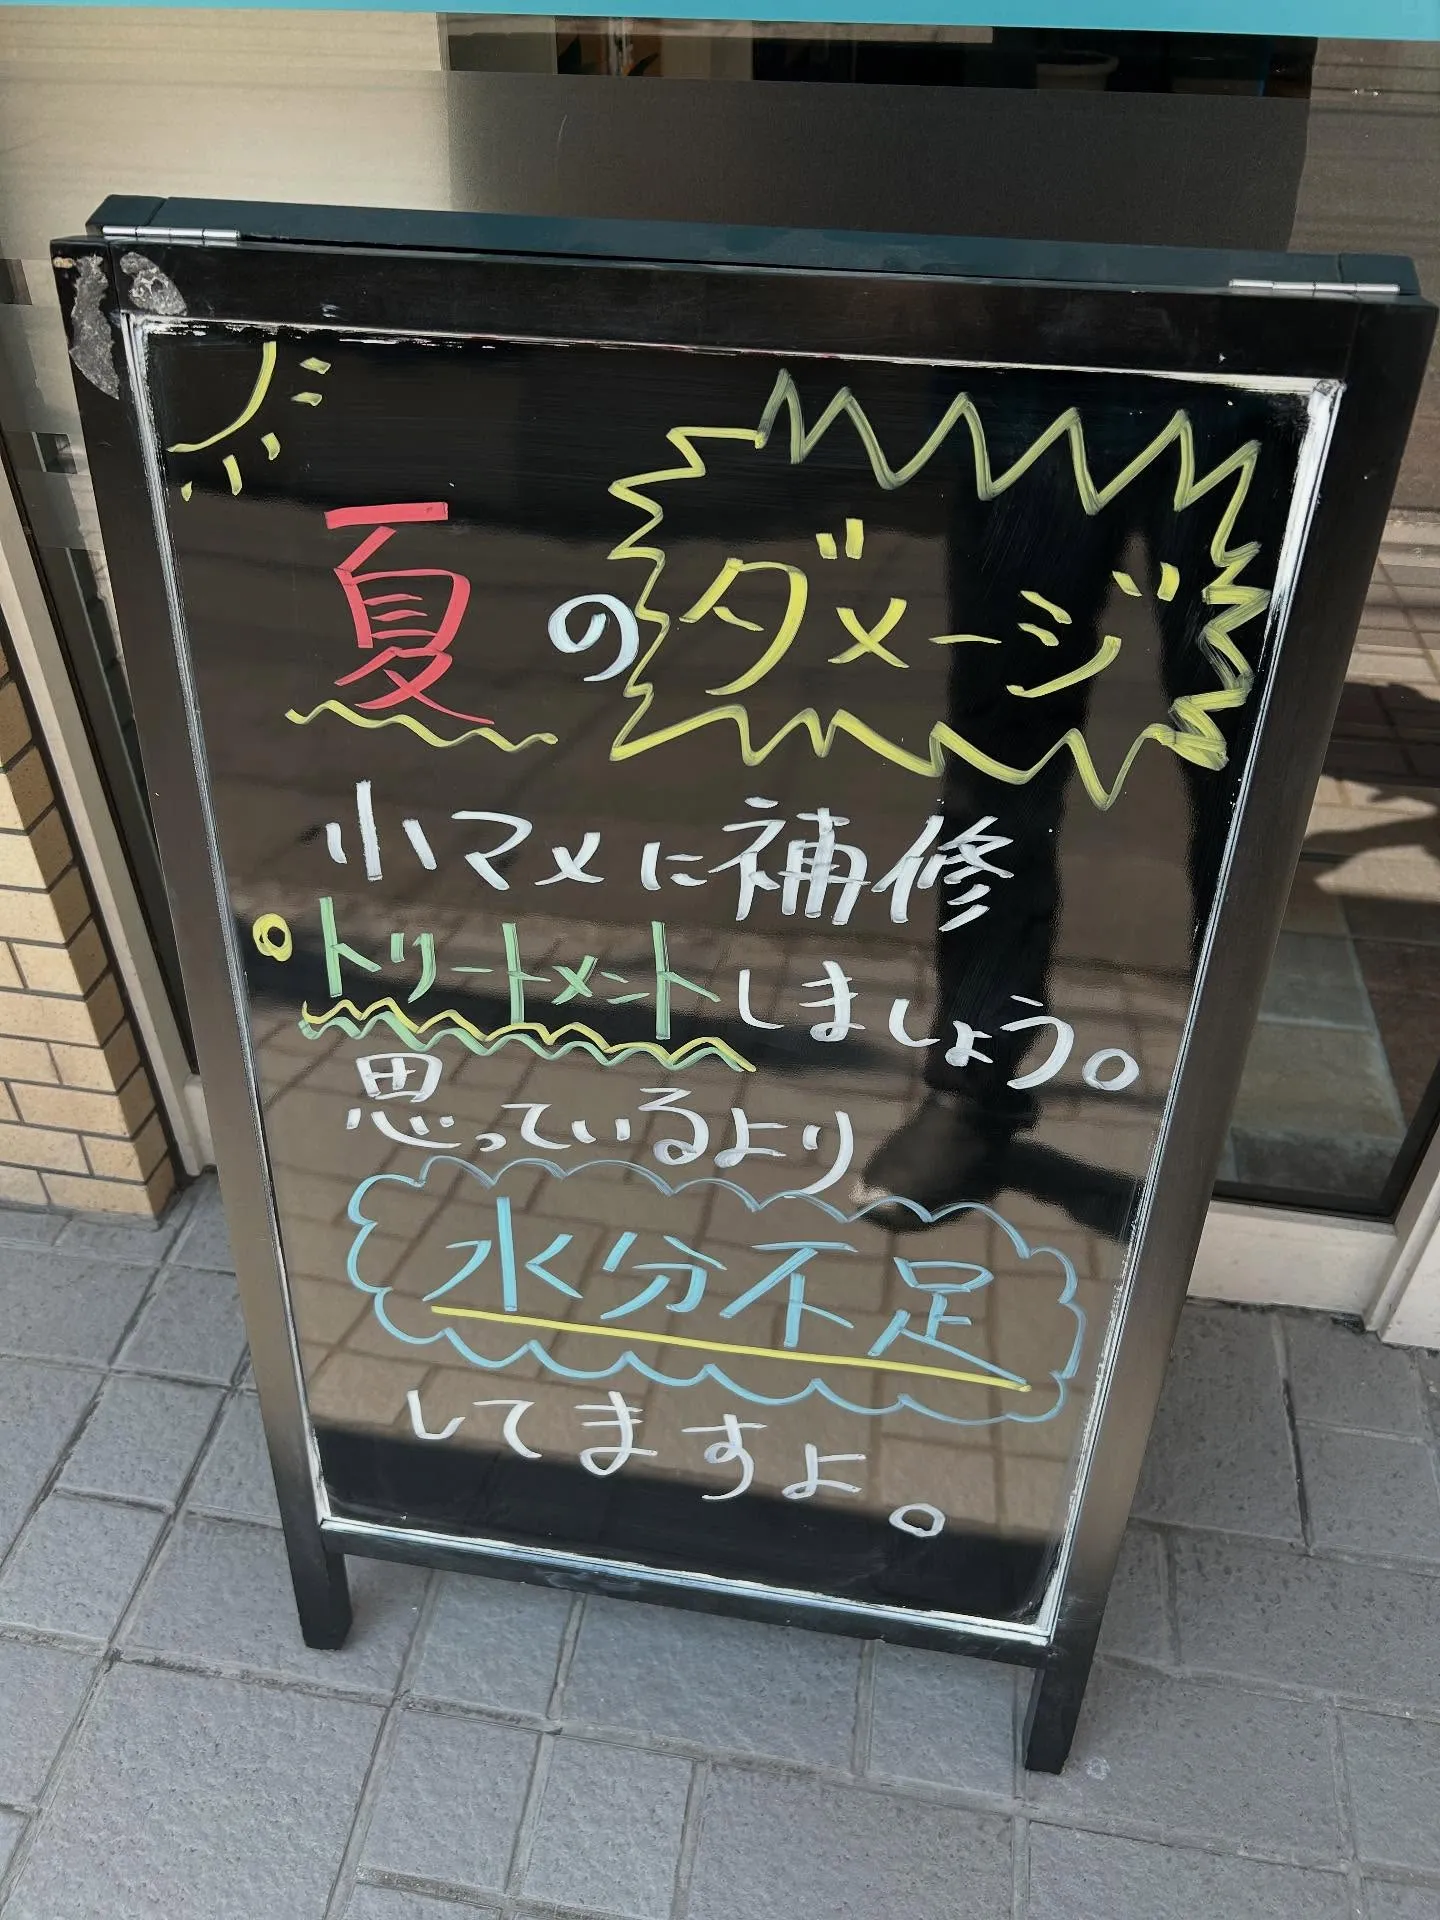 夏のダメージ
小マメに補修
トリートメントしましょう。
思っているより
水分不足
してますよ。